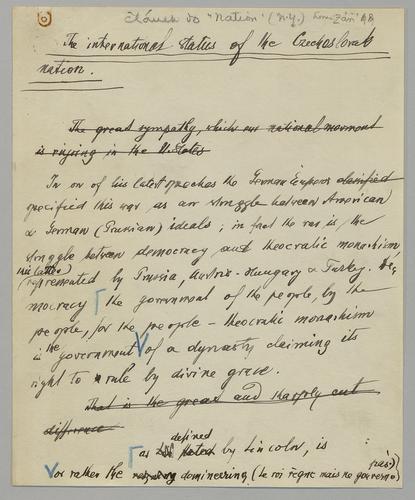 článek do "Nation" (N.Y.) konec září '18
The international status of the Czechoslovak
nation.
The great sympathy, which our national movment
is enjoying in the U. States
In on of his latest speaches the German Emperor classified
specified this war as an struggle between American
& German (Prussian) ideals; in fact the war is the
struggle between democracy and theocratic monarchism
(the latter)
represented by Prussia, Austria-Hungary & Turkey. De-
mocracy the government of the people, by the
people, for the people – theocratic monarchism
is the government of a dynasty claiming its
right to rule by divine grace.
That is the great and sharply cut
difference
defined
as stated by Lincoln, is
or rather the domineering (le roi règne mais ne gouverne
pas.)